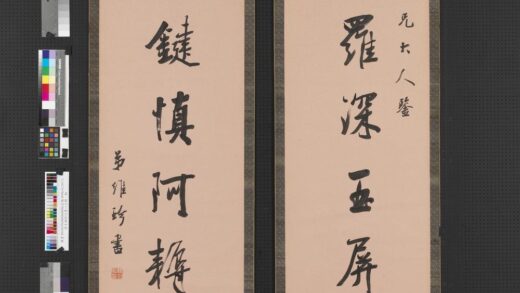 兄大人鑒
羅深玉屏
鍵慎阿
弟維珍書